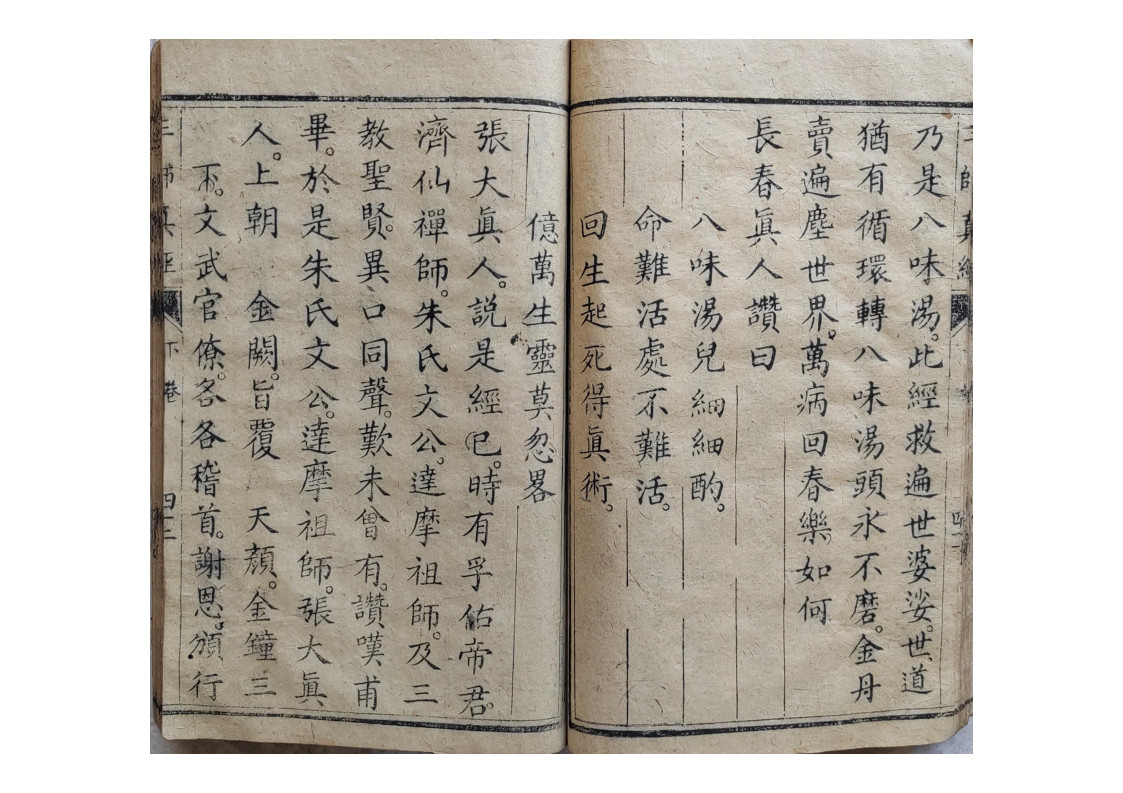 乃是八味湯。此經救遍世婆娑。世道
猶有循環轉八味湯頭永不磨。金丹
賣遍塵世界。萬病回春樂如何
長春眞人讚曰
八味湯兒細細酌。
命難活處不難活。
回生起死得眞術。
億萬生靈莫忽畧
張大眞人。説是經已。時有孚佑帝君。
濟仙禪師。朱氏文公。達摩祖師。及三
教聖賢。異口同聲。歎未曾有。讚嘆甫
畢。於是朱氏文公。達摩祖師。張大眞
人。上朝 金闕。旨覆 天顏。金鐘三
下。文武官僚。各各稽首。謝恩。頒行
三師眞經
下卷
四十三